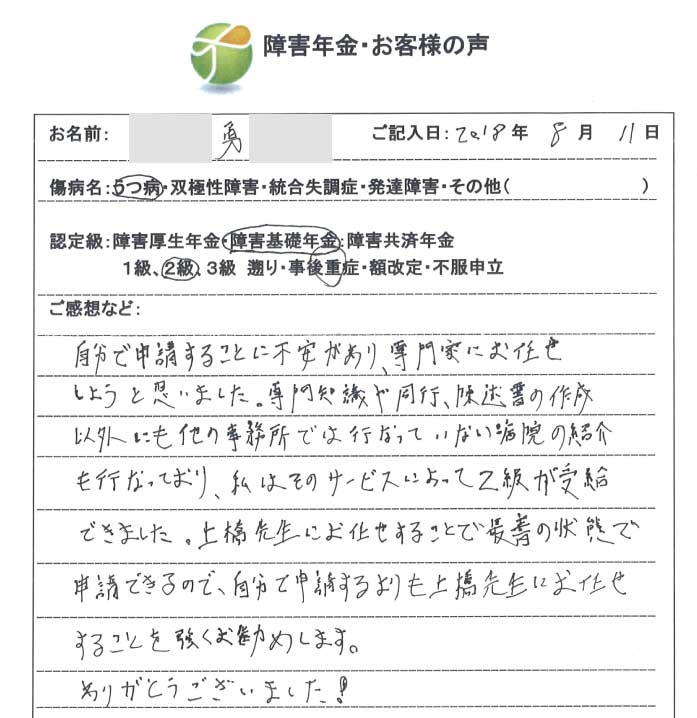 障害年金・お客様の声
お名前: 勇 ご記入日: 2018 年 8 月 11 日
傷病名:うつ病・双極性障害・統合失調症・発達障害・その他( )
認定級:障害厚生年金・障害基礎年金・障害共済年金
1級、2級、3級 遡り・事後重症・額改定・不服申立
ご感想など:
自分で申請することに不安があり、専門家にお任せ
しようと思いました。専門知識や同行、陳述書の作成
以外にも他の事務所では行なっていない病院の紹介
も行なっており、私はそのサービスによって2級が受給
できました。上橋先生にお任せすることで最善の状態で
申請できるので、自分で申請するよりも上橋先生にお任せ
することを強くお勧めします。
ありがとうございました!